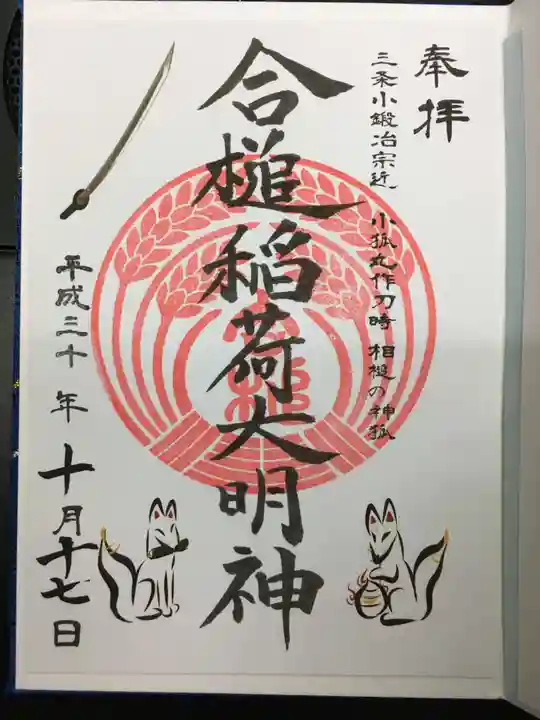 奉拝
三条小鍛冶宗近 小狐丸作刀時 相槌の神狐
合槌稲荷大明神
平成三十年 十月十七日